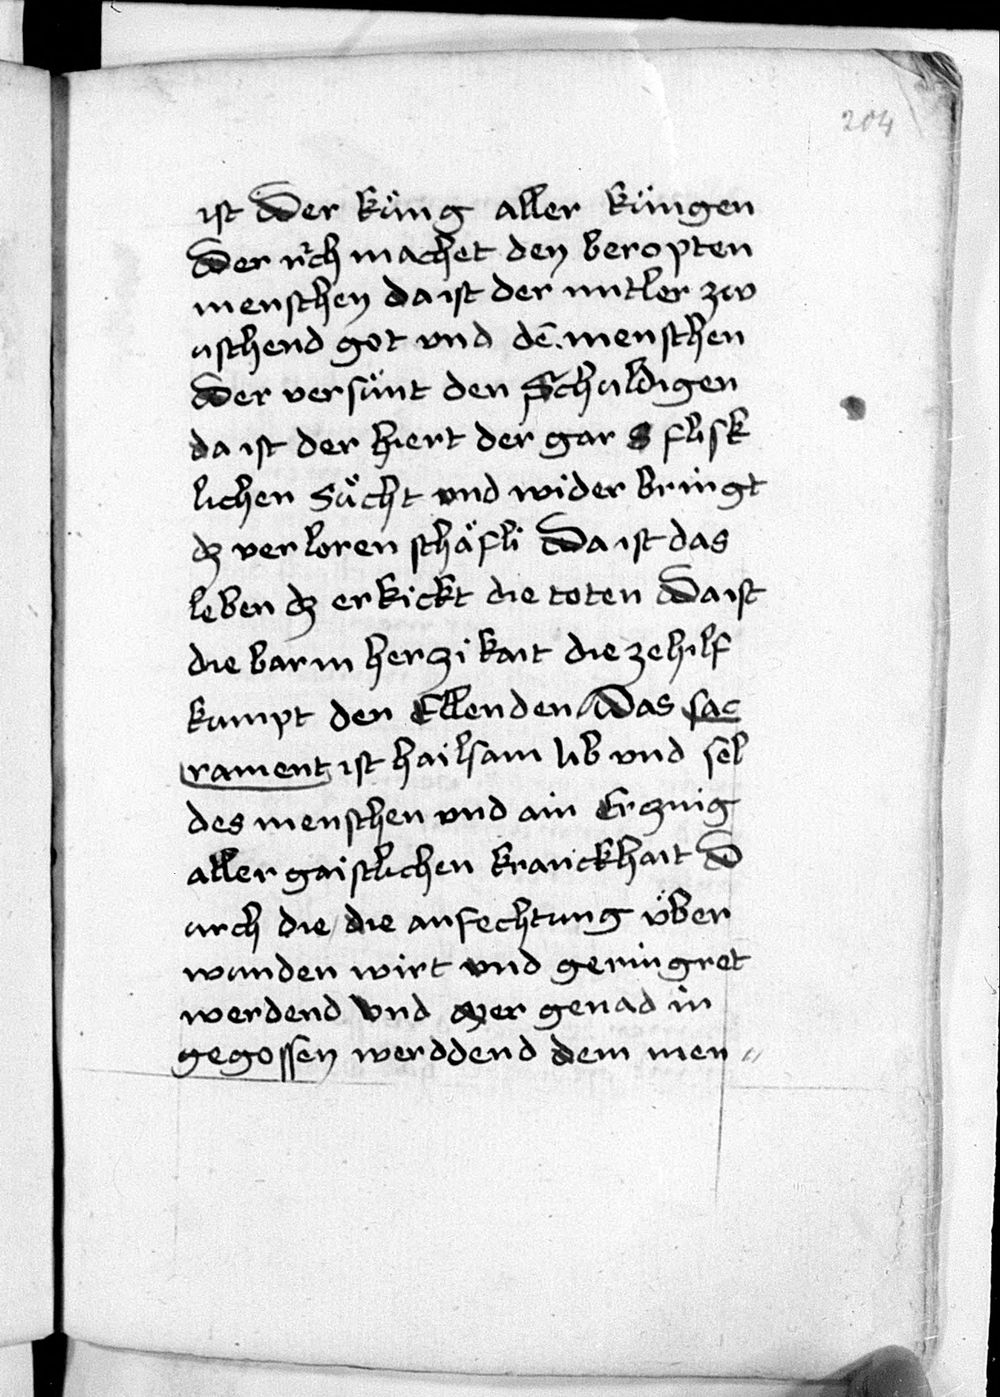 204
ist Der küng aller küngen
Der rich machet den beropten
menschen da ist der mitler zw
ischend got vnd dē menschen
Der versünt den Schuldigen
da ist der hiert der gar flisk
lichen sücht vnd wider bringt
dz verloren schäfli Da ist das
leben dz erkickt die toten Da ist
die barm herczi kait die ze hilf
kumpt den Ellenden Das sac
rament ist hailsam lib vnd sel
des menschen vnd ain Ercznig
aller gaistlichen kranckhait D
urch die die anfechtung über
wunden wirt vnd geringret
werdend Vnd mer genad in
gegossen werddend dem men〃